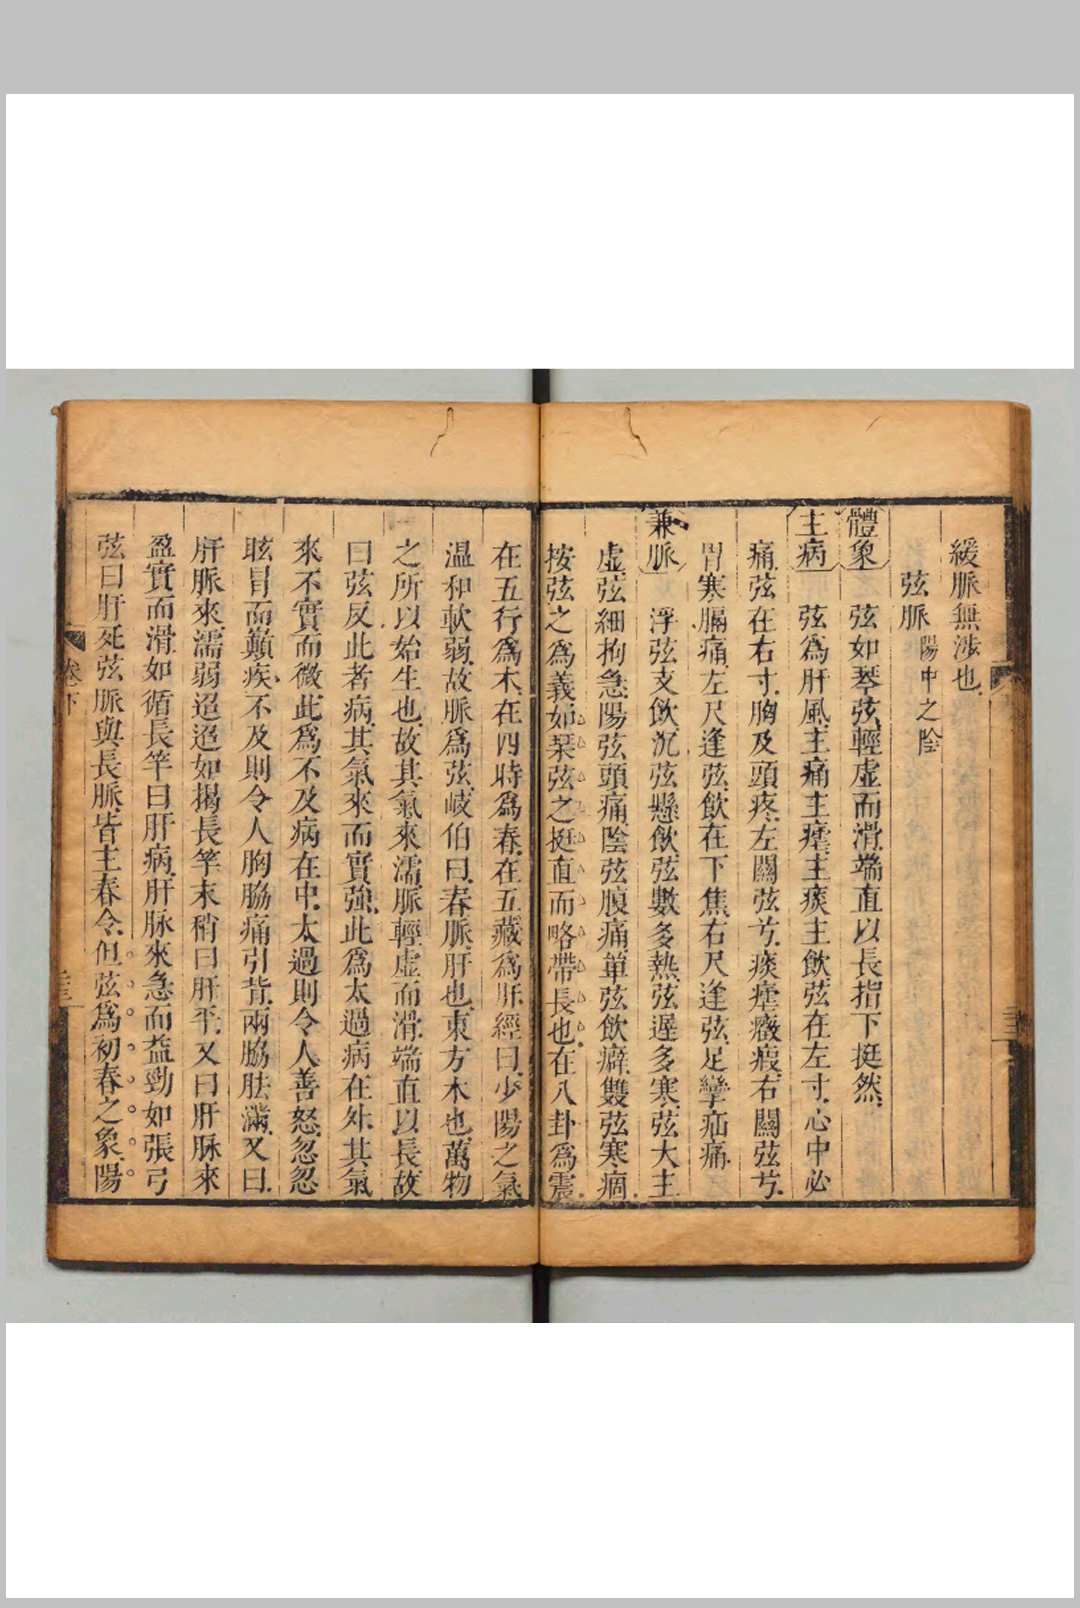 緩脈無涉也
弦脈 陽中之陰
體象 弦如琴弦輕虛而滑端直以長指下挺然
主病 弦爲肝風主痛主瘧主痰主飲弦在左寸心中必
痛弦在右寸胸及頭疼左關弦兮痰瘧癥瘕右關弦兮
胃寒膈痛左尺逢弦飲在下焦右尺逢弦足攣疝痛
兼脈 浮弦支飲沉弦懸飲弦數多熱弦遲多寒弦大主
虛弦細拘急陽弦頭痛陰弦腹痛單弦飲癖雙弦寒痼
按弦之爲義如琹弦之挺直而略帶長也在八卦爲震
在五行爲木在四時爲春在五藏爲肝經曰少陽之氣
温和軟弱故脈爲弦岐伯曰春脈肝也東方木也萬物
之所以始生也故其氣來濡脈輕虛而滑端直以長故
曰弦反此者病其氣來而實強此爲太過病在外其氣
來不實而微此爲不及病在中太過則令人善怒忽忽
眩冒而巔疾不及則令人胸脇痛引背兩脇胠滿又曰
肝脈來濡弱迢迢如揭長竿末稍曰肝平又曰肝脉來
盈實而滑如循長竿曰肝病肝脉來急而益勁如張弓
弦曰肝死弦脈與長脈皆主春令但弦爲初春之象陽
卷下